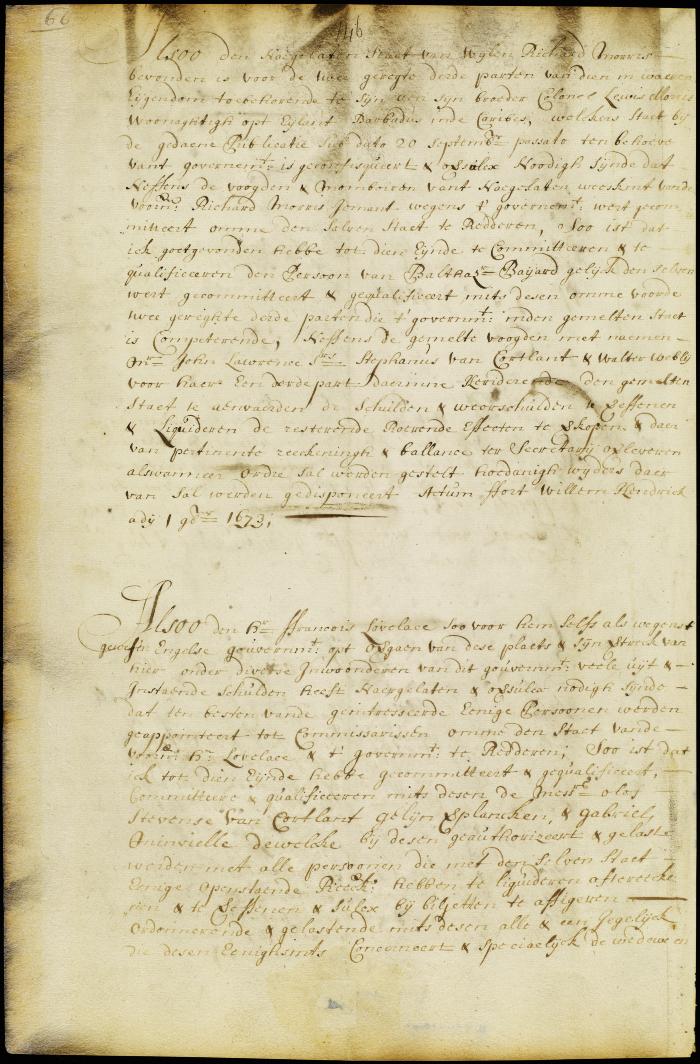 66
146
Alsoo den Naegelaten Staet van Wylen Richard Morris
bevonden is voor de twee geregte derde parten van dien in waeren
Eijgendom toebehorende te sijn aen sijn broeder Colonel Lewis Morris
Woonagtigh opt Eijlant Barbados inde Caribes, welckers Staet bij
de gedaene Publicatie sub dato 20 Septembr passato ten behoeve
vant governemt: is geconfisqueert & oversulcx Noodigh sijnde dat
Neffens de voogden & momboiren vant Naegelaten weeskint vande
voorn: Richard Morris Jemant wegens t' governemt: wert gecom
mitteert omme den selven Staet te Redderen, Soo ist dat
ick goetgevonden hebbe tot dien Eijnde te Committeeren & te
qualificeeren den Persoon van Balthazr Baijard gelijck den selven
wert gecommitteert & gequalificeert mits desen omme voorde
twee geregte derde parten die t' governmt: inden gemelten Staet
is Competerende, Neffens de gemelte voogden met naemen
Mr John Lawrence Srs Stephanus van Cortlant & Walter Webbly
voor haer Een derde part daerinne Resideerende den gemelten
Staet te aenvaerden de schulden & weerschulden te Effenen
& Liquideren de resterende Roerende Effecten te verkopen & daer
van pertinente reeckeningh & ballance ter Secretarij overleveren
alswanneer ordre sal werden gestelt hoedanigh wijders daer
van sal werden gedisponeert Actum ffort Willem Hendrick
adij 1 9br 1673;
Alsoo den hr ffrancois Lovelace soo voor hem selfs als wegens t
gewesen Engelse gouvernmt: opt overgaen van dese plaets & sijn vertreck van
hier onder diverse Inwoonderen van dit gouvernmt: veele uijt &
Instaende schulden heeft Naergelaten & oversulcx nodigh sijnde
dat ten besten vande geintresseerde Eenige Persoonen werden
geappointeert tot Commissarissen omme den Staet vande
voorn: hr Lovelace & t' governmt: te Redderen; Soo ist dat
ick tot dien Eijnde hebbe gecommitteert & gequalificeert,
Committeere & qualificeeren mits desen de Messrs olof
Stevense van Cortlant gelijn verplancken, & Gabriel
Minvielle dewelcke bij desen geauthorizeert & gelast
werden met alle persoonen die met den selven Staet
Eenige openstaende Reeck: hebben te liquideren afterecke
nen & te Effenen & sulcx bij biljetten te affigeren
ordonnerende & gelastende mits desen alle & een Jegelijck
die desen Eenighsints Concerneert & speciaelijck de weduwe en